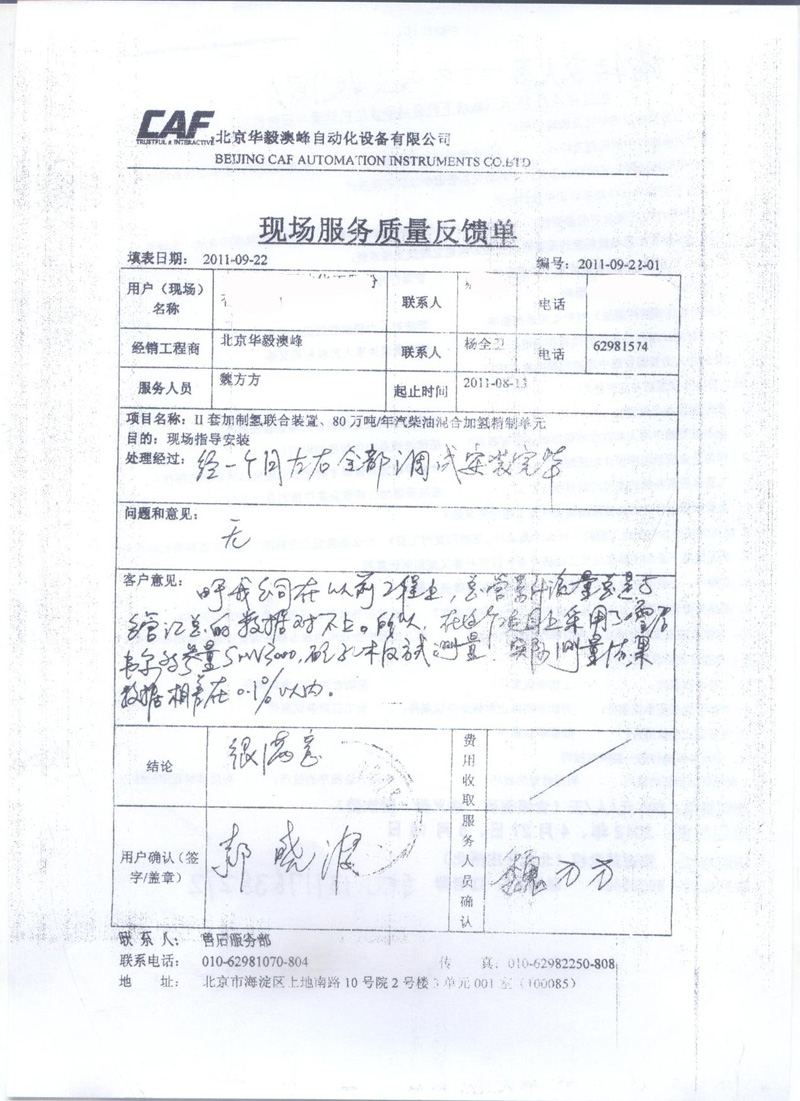 CAF
TRUSTFUL & INTERACTIVE
北京华毅澳峰自动化设备有限公司
BEIJING CAF AUTOMATION INSTRUMENTS CO.LTD
现场服务质量反馈单
填表日期: 2011-09-22 编号: 2011-09-22-01
用户(现场)名称 联系人 电话
经销工程商 北京华毅澳峰 联系人 杨全卫 电话 62981574
服务人员 魏方方 起止时间 2011-08-13
项目名称: II 套加制氢联合装置、80 万吨/年汽柴油混合加氢精制单元
目的: 现场指导安装
处理经过: 经一个月左右全部调试安装完毕
问题和意见:
无
客户意见: 由于我公司在以前工程上,总管累计流量总是与
管汇总的数据对不上。所以,在这个项目上采用了
多参量SMV3000,孔板方式测量,实际测量结果
数据相差在0.1%以内。
结论 很满意 费用收取
用户确认(签字/盖章) 郭晓 服务员确认 魏方方
联 系 人: 售后服务部
联系电话: 010-62981070-804 传 真: 010-62982250-808
地 址: 北京市海淀区上地南路 10 号院 2 号楼 3 单元 001 室(100085)